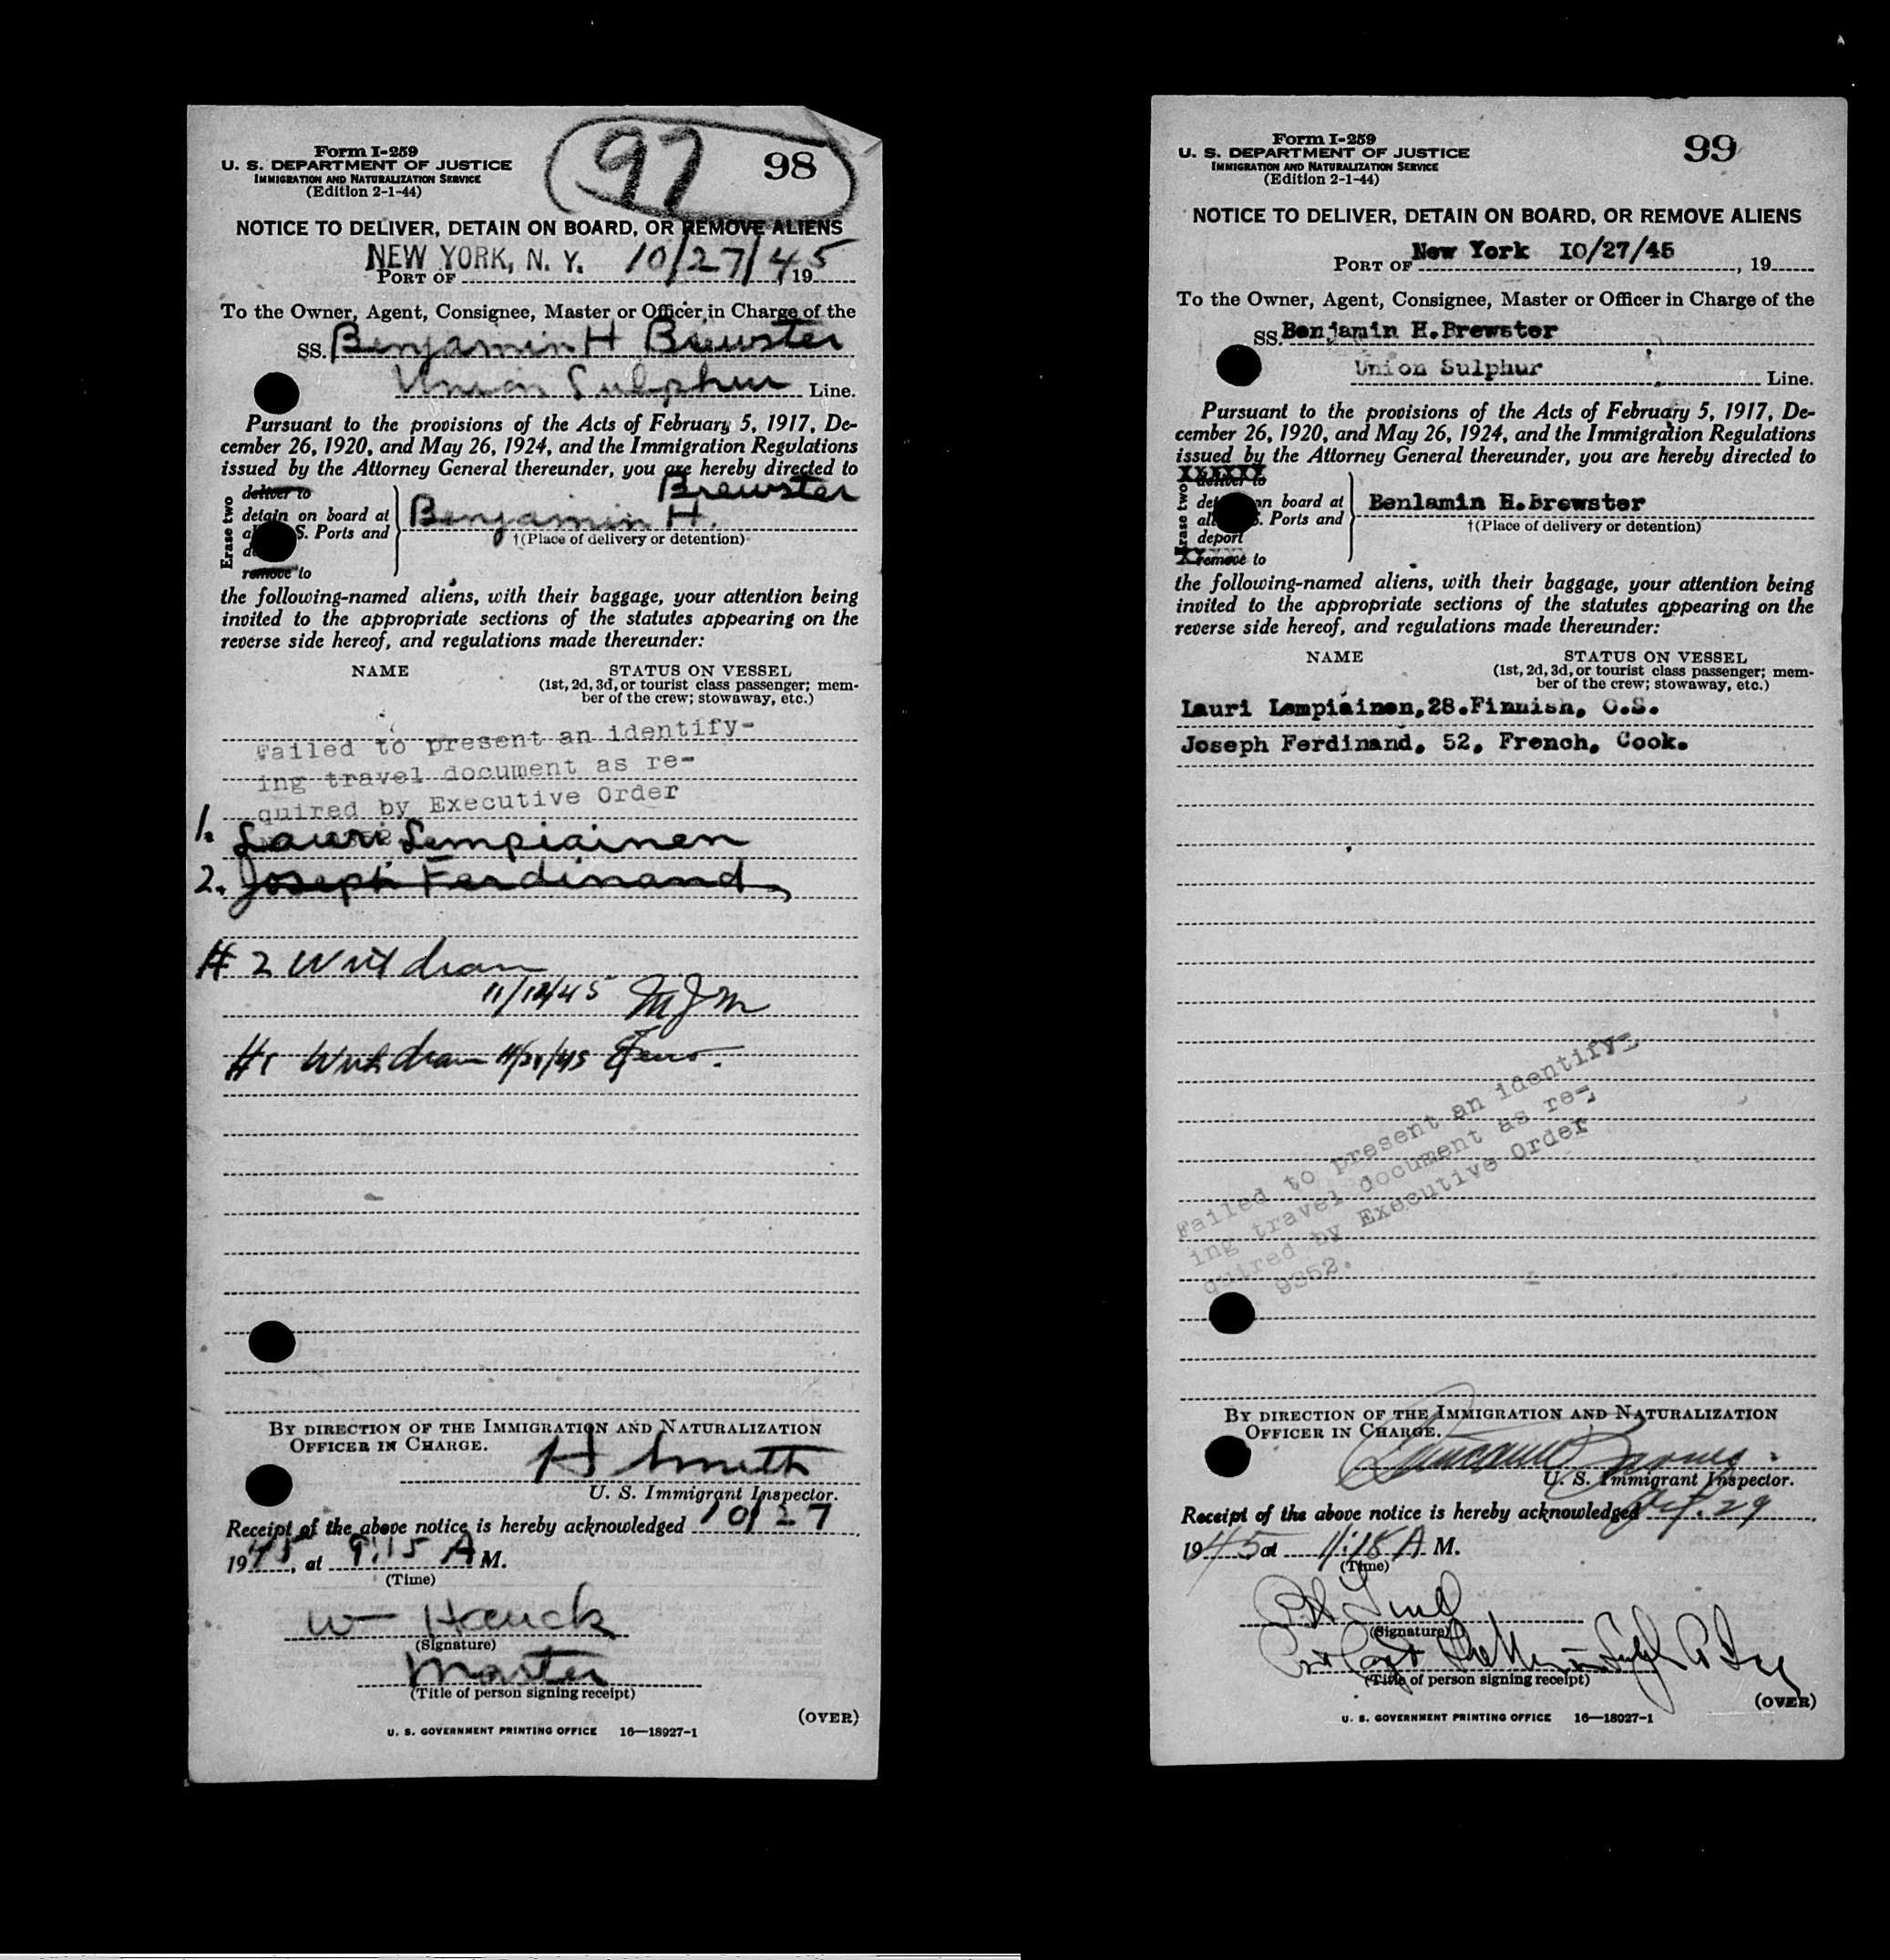 Form I-259
U. S. DEPARTMENT OF JUSTICE
IMMIGRATION AND NATURALIZATION SERVICE
(Edition 2-1-44)
97 98
NOTICE TO DELIVER, DETAIN ON BOARD, OR REMOVE ALIENS
NEW YORK, N. Y. 10/27/45
PORT OF , 19
To the Owner, Agent, Consignee, Master or Officer in Charge of the
SS. Benjamin H Brewster
Union Sulphur Line.
Pursuant to the provisions of the Acts of February 5, 1917, De-
cember 26, 1920, and May 26, 1924, and the Immigration Regulations
issued by the Attorney General thereunder, you are hereby directed to
Erase two
deliver to
detain on board at
S. Ports and
remove to
Brewster
Benjamin H.
†(Place of delivery or detention)
the following-named aliens, with their baggage, your attention being
invited to the appropriate sections of the statutes appearing on the
reverse side hereof, and regulations made thereunder:
NAME STATUS ON VESSEL
(1st, 2d, 3d, or tourist class passenger; mem-
ber of the crew; stowaway, etc.)
Failed to present an identify-
ing travel document as re-
quired by Executive Order
1. Lauri Lempiainen
2. Joseph Ferdinand,
# 2 Withdrawn
11/12/45 MJM
#1 Withdrawn
BY DIRECTION OF THE IMMIGRATION AND NATURALIZATION
OFFICER IN CHARGE.
H Smith
U. S. Immigrant Inspector.
Receipt of the above notice is hereby acknowledged 10/27
1945, at 9:15 A M.
(Time)
Wm Hauck
(Signature)
Master
(Title of person signing receipt)
(OVER)
U. S. GOVERNMENT PRINTING OFFICE 16—18927-1
Form I-259
U. S. DEPARTMENT OF JUSTICE
IMMIGRATION AND NATURALIZATION SERVICE
(Edition 2-1-44)
99
NOTICE TO DELIVER, DETAIN ON BOARD, OR REMOVE ALIENS
PORT OF New York 10/27/45, 19
To the Owner, Agent, Consignee, Master or Officer in Charge of the
SS. Benjamin H.Brewster
Union Sulphur Line.
Pursuant to the provisions of the Acts of February 5, 1917, De-
cember 26, 1920, and May 26, 1924, and the Immigration Regulations
issued by the Attorney General thereunder, you are hereby directed to
Erase two
deliver to
on board at
Ports and
deport
remove to
Benlamin H.Brewster
†(Place of delivery or detention)
the following-named aliens, with their baggage, your attention being
invited to the appropriate sections of the statutes appearing on the
reverse side hereof, and regulations made thereunder:
NAME STATUS ON VESSEL
(1st, 2d, 3d, or tourist class passenger; mem-
ber of the crew; stowaway, etc.)
Lauri Lempiainen,28.Finnish, O.S.
Joseph Ferdinand, 52, French, Cook.
Failed to present an identify-
ing travel document as re-
quired by Executive Order
9352.
BY DIRECTION OF THE IMMIGRATION AND NATURALIZATION
OFFICER IN CHARGE.
U. S. Immigrant Inspector.
Receipt of the above notice is hereby acknowledged Oct. 29
1945 at 11:18 A M.
(Time)
(Signature)
(Title of person signing receipt)
(OVER)
U. S. GOVERNMENT PRINTING OFFICE 16—18927-1